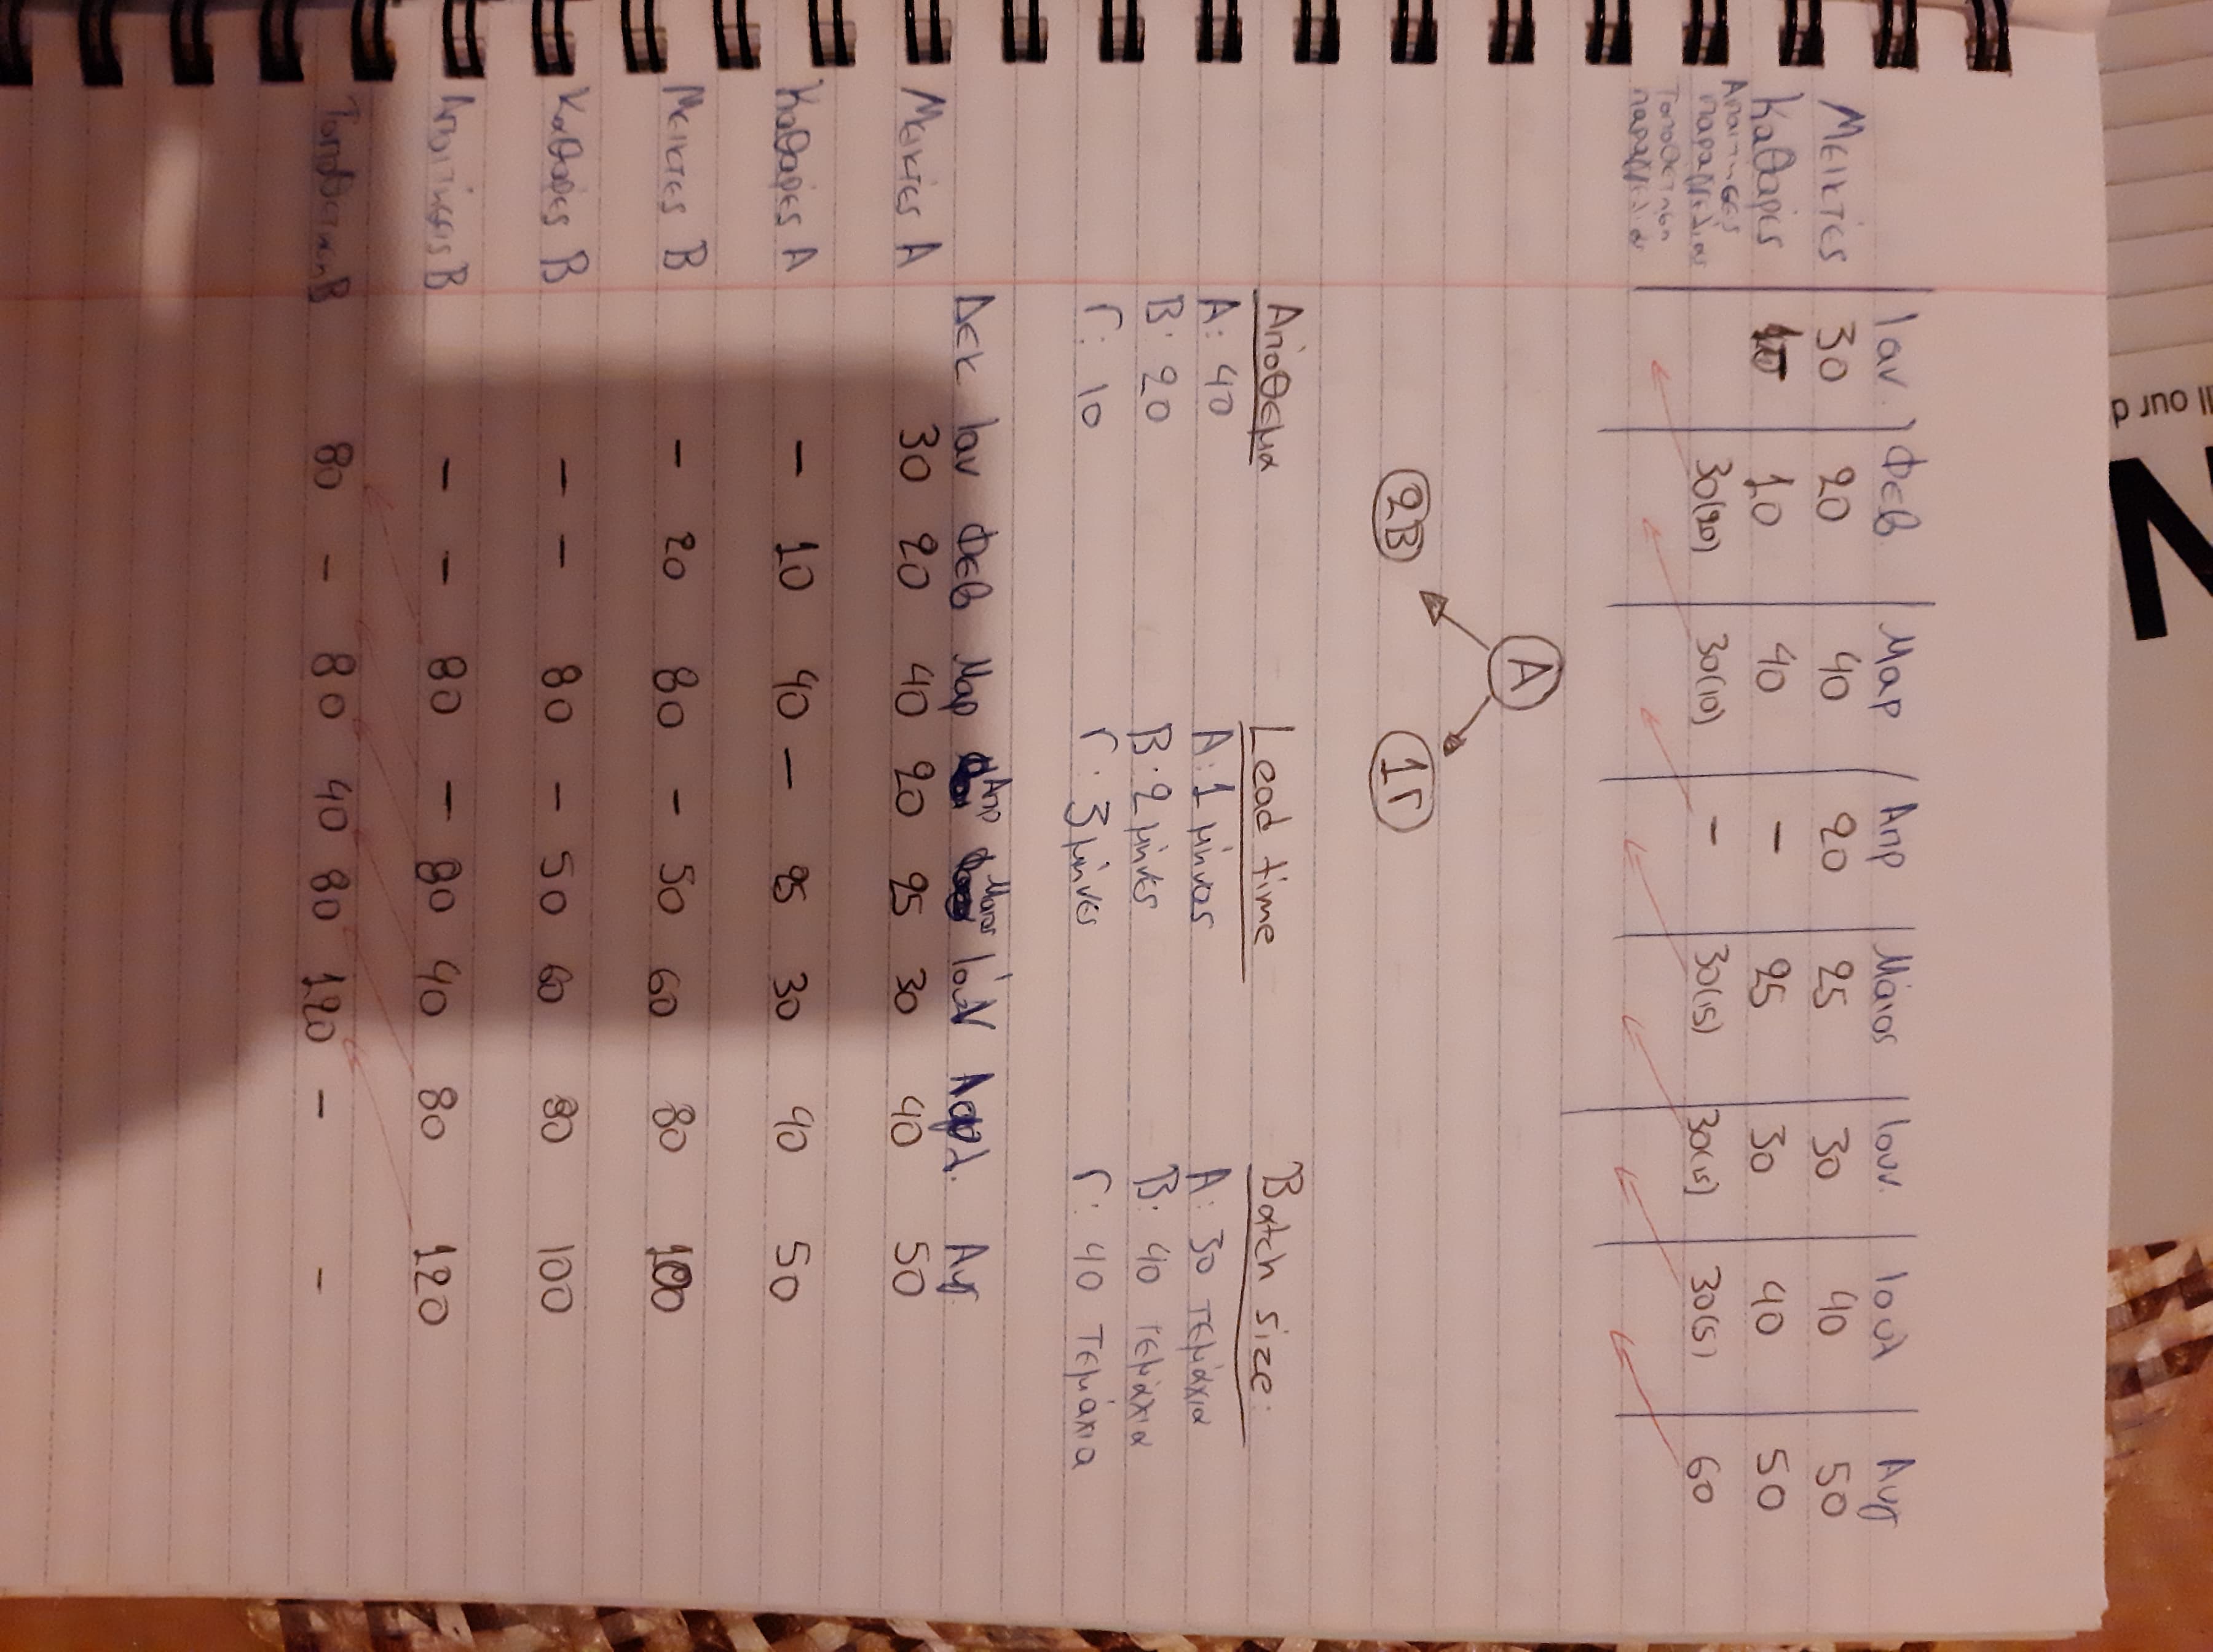 ll our d
N
Ιαν. Φεβ. Μαρ Απρ Μάιος Ιουν. Ιουλ Αυγ
Μεικτές 30 20 40 20 25 30 40 50
Καθαρές 10 40 - 25 30 40 50
Απαιτήσεις
παραγγελίας 30(20) 30(10) - 30(15) 30(15) 30(5) 60
Τοποθέτηση
παραγγελίας
A
2B 1Γ
Απόθεμα Lead time Batch size:
A: 40 A: 1 μήνας A: 30 τεμάχια
B: 20 B: 2 μήνες B: 40 τεμάχια
Γ: 10 Γ: 3 μήνες Γ: 40 τεμάχια
Δεκ Ιαν Φεβ Μαρ Απρ Μαιος Ιουν Αυγ.
Μεικτές A 30 20 40 20 25 30 40 50
Καθαρές A - 10 40 - 25 30 40 50
Μεικτες B - 20 80 - 50 60 80 100
Καθαρές B - - 80 - 50 60 80 100
Απαιτήσεις B - - 80 - 80 40 80 120
Τοποθέτηση B 80 - 80 40 80 120 - -